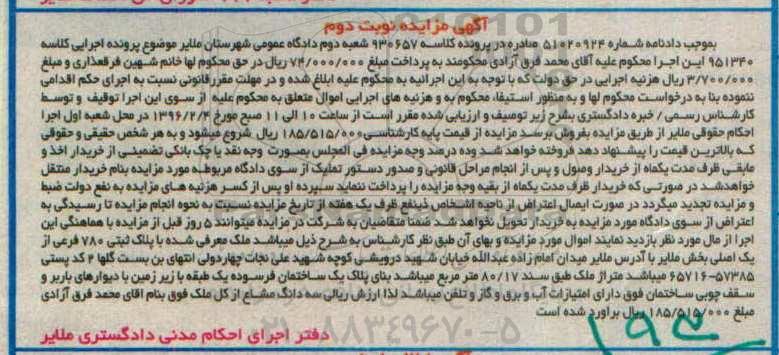 آگهی مزایده نوبت دوم
بموجب دادنامه شماره ۵۱۰۲۰۹۲۴ صادره در پرونده کلاسه ۹۳۰۶۵۷ شعبه دوم دادگاه عمومی شهرستان ملایر موضوع پرونده اجرایی کلاسه
۹۵۱۳۴۰ این اجرا محکوم علیه آقای محمد فرق آزادی محکومند به پرداخت مبلغ ۷۴/۰۰۰/۰۰۰ ریال در حق محکوم لها خانم شهین فرقعذاری و مبلغ
۳/۷۰۰/۰۰۰ ریال هزینه اجرایی در حق دولت که با توجه به این اجرائیه به محکوم علیه ابلاغ شده و در مهلت مقرر قانونی نسبت به اجرای حکم اقدامی
ننموده بنا به درخواست محکوم لها و به منظور استیفاء محکوم به و هزینه های اجرایی اموال متعلق به محکوم علیه از سوی این اجرا توقیف و توسط
کارشناس رسمی / خبره دادگستری بشرح زیر توصیف و ارزیابی شده مقرر است از ساعت ۱۰ الی ۱۱ صبح مورخ ۱۳۹۶/۲/۴ در محل شعبه اول اجرا
احکام حقوقی ملایر از طریق مزایده بفروش برسد مزایده از قیمت پایه کارشناسی ۱۸۵/۵۱۵/۰۰۰ ریال شروع میشود و به هر شخص حقیقی و حقوقی
که بالاترین قیمت را پیشنهاد دهد فروخته خواهد شد وده درصد وجه مزایده فی المجلس بصورت وجه نقد یا چک بانکی تضمینی از خریدار اخذ و
مابقی ظرف مدت یکماه از خریدار وصول و پس از انجام مراحل قانونی و صدور دستور تملیک از سوی دادگاه مربوطه مورد مزایده بنام خریدار منتقل
خواهدشد در صورتی که خریدار ظرف مدت یکماه از بقیه وجه مزایده را پرداخت ننماید سپرده او پس از کسر هزینه های مزایده به نفع دولت ضبط
و مزایده تجدید میگردد در صورت ایصال اعتراض از ناحیه اشخاص ذینفع ظرف یک هفته از تاریخ مزایده نسبت به نحوه انجام مزایده تا رسیدگی به
اعتراض از سوی دادگاه مورد مزایده به خریدار تحویل نخواهد شد ضمنا متقاضیان به شرکت در مزایده میتوانند ۵ روز قبل از مزایده با هماهنگی این
اجرا از مال مورد نظر بازدید نمایند اموال مورد مزایده و بهای آن طبق نظر کارشناس به شرح ذیل میباشد ملک معرفی شده با پلاک ثبتی ۷۸۰ فرعی از
یک اصلی بخش ملایر با آدرس ملایر میدان امام زاده عبدالله خیابان شهید درویشی کوچه شهید علی نجات چهاردولی انتهای بن بست گلها ۲ کد پستی
۵۷۳۸۵-۶۵۷۱۶ میباشد متراژ ملک طبق سند ۸۰/۱۷ متر مربع میباشد بنای پلاک یک ساختمان فرسوده یک طبقه با زیر زمین با دیوارهای باربر و
سقف چوبی ساختمان فوق دارای امتیازات آب و برق و گاز و تلفن میباشد لذا ارزش ریالی سه دانگ مشاع از کل ملک فوق بنام اقای محمد فرق آزادی
مبلغ ۱۸۵/۵۱۵/۰۰۰ ریال برآورد شده است
دفتر اجرای احکام مدنی دادگستری ملایر
۰۲۱-۸۸۳۴۹۶۷۰-۵